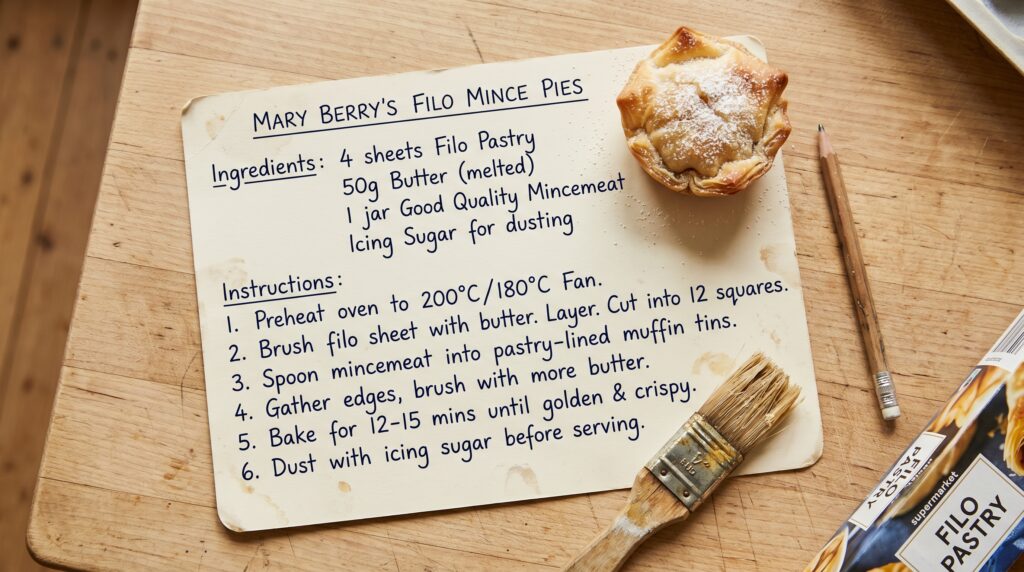 MARY BERRY'S FILO MINCE PIES
Ingredients: 4 sheets Filo Pastry
50g Butter (melted)
1 jar Good Quality Mincemeat
Icing Sugar for dusting
Instructions:
1. Preheat oven to 200°C/180°C Fan.
2. Brush filo sheet with butter. Layer. Cut into 12 squares.
3. Spoon mincemeat into pastry-lined muffin tins.
4. Gather edges, brush with more butter.
5. Bake for 12-15 mins until golden & crispy.
6. Dust with icing sugar before serving.
FILO
PASTRY
supermarket
FILO
PASTRY